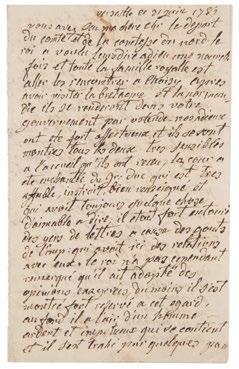 versaille ce 21 juin 1782
vous avez su mon cher le depart
du comte et de la comtesse du nord le
roi a voulu leur dire adieu une nouvelle
fois et toute sa famille royale est
allée les rencontrer a choisy apres
avoir visité la bretagne et la normandie
ils se rendront dans votre
gouvernement par ostende nos adieux
ont été fort affectueux et ils se sont
montrés tous les deux tres sensibles
a l'accueil qu'ils ont reçu, la cour a
été enchantée du gr. duc qui est très
affable, instruit bien renseigné et
qui avoit toujours quelque chose
d'aimable a dire, il étoit fort entouré
des gens de lettres a cause des gouts
de l'imp: qui avoit ici des relations
avec eux. le roi n'a pas cependant
remarqué qu'il ait adapté des
opinions exagerées du moins il s'est
montré fort reservé a cet egard.
au fond il a l'air d'un homme
ardent et impetueux qui se contient
et il s'est trahi pour quelques pa